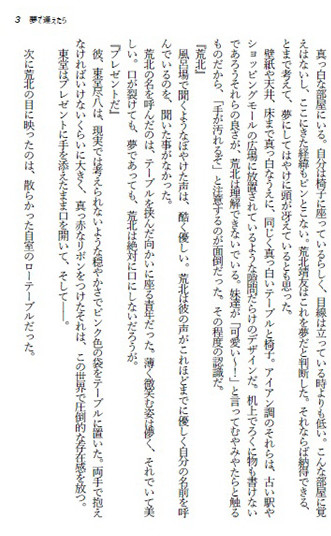 3　夢で逢えたら
　真っ白な部屋にいる。自分は椅子に座っているらしく、目線は立っている時よりも低い。こんな部屋に覚
えはないし、ここにきた経緯もピンとこない。荒北靖友はこれを夢だと判断した。それならば納得できる、
とまで考えて、夢にしてはやけに頭が冴えているとも思った。
　壁紙や天井、床まで真っ白なうえに、同じく真っ白いテーブルと椅子。アイアン調のそれらは、古い駅や
ショッピングモールの広場に放置されているような隙間だらけのデザインだ。机上でろくに物も書けない
であろうそれらの良さが、荒北は理解できないでいる。妹達が「可愛い〜！」と言ってむやみやたらと触る
ものだから、「手が汚れるぞ」と注意するのが面倒だった。その程度の認識だ。
『荒北』
　風呂場で聞くようなぼやけた声は、酷く優しい。荒北は彼の声がこれほどまでに優しく自分の名前を呼
んでいるのを、聞いた事がなかった。
　荒北の名を呼んだのは、テーブルを挟んだ向かいに座る青年だった。薄く微笑む姿は儚く、それでいて美
しい。口が裂けても、夢であっても、荒北は絶対に口にしないだろうが。
『プレゼントだ』
　彼、東堂尽八は、現実では考えられないような穏やかさでピンク色の袋をテーブルに置いた。両手で抱え
なければいけないくらいに大きく、真っ赤なリボンをつけたそれは、この世界で圧倒的な存在感を放つ。
東堂はプレゼントに手を添えたまま口を開いて、そして――。

　次に荒北の目に映ったのは、散らかった自室のローテーブルだった。